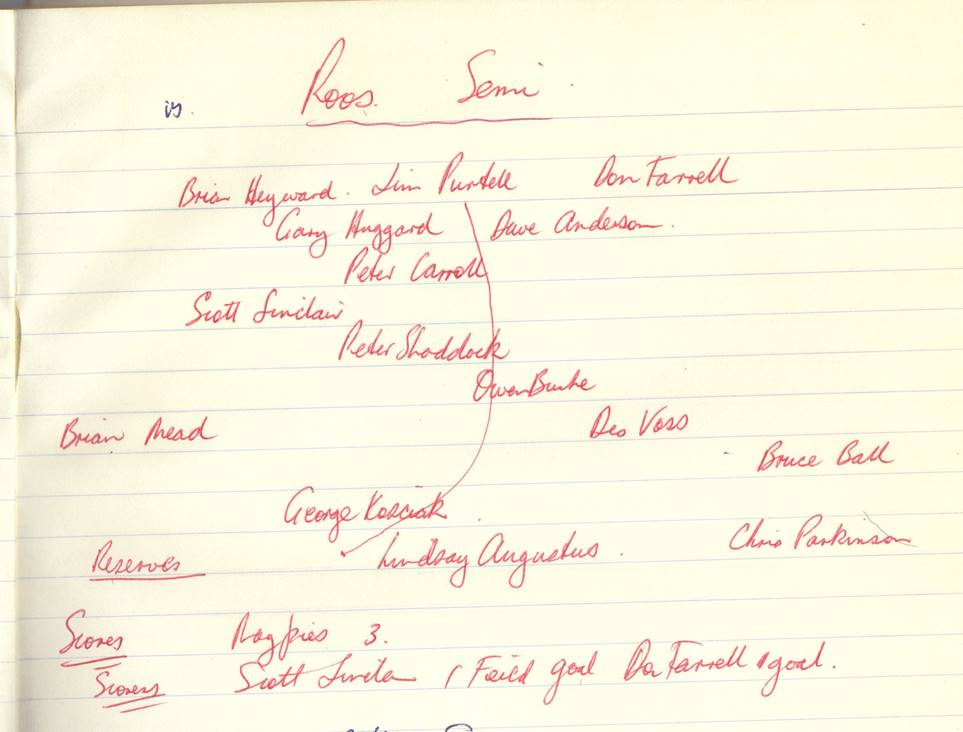 vs. Roos. Semi
Brian Heyward. Jim Purtell Don Farrell
Gary Huggard Dave Anderson.
Peter Carroll
Scott Sinclair
Peter Shaddock
Owen Burke
Brian Mead Des Voss
Bruce Ball
George Kosciak
Reserves Lindsay Augustus. Chris Parkinson
Scores Magpies 3.
Scorers Scott Sinclair 1 Feild goal Don Farrell 1 goal.